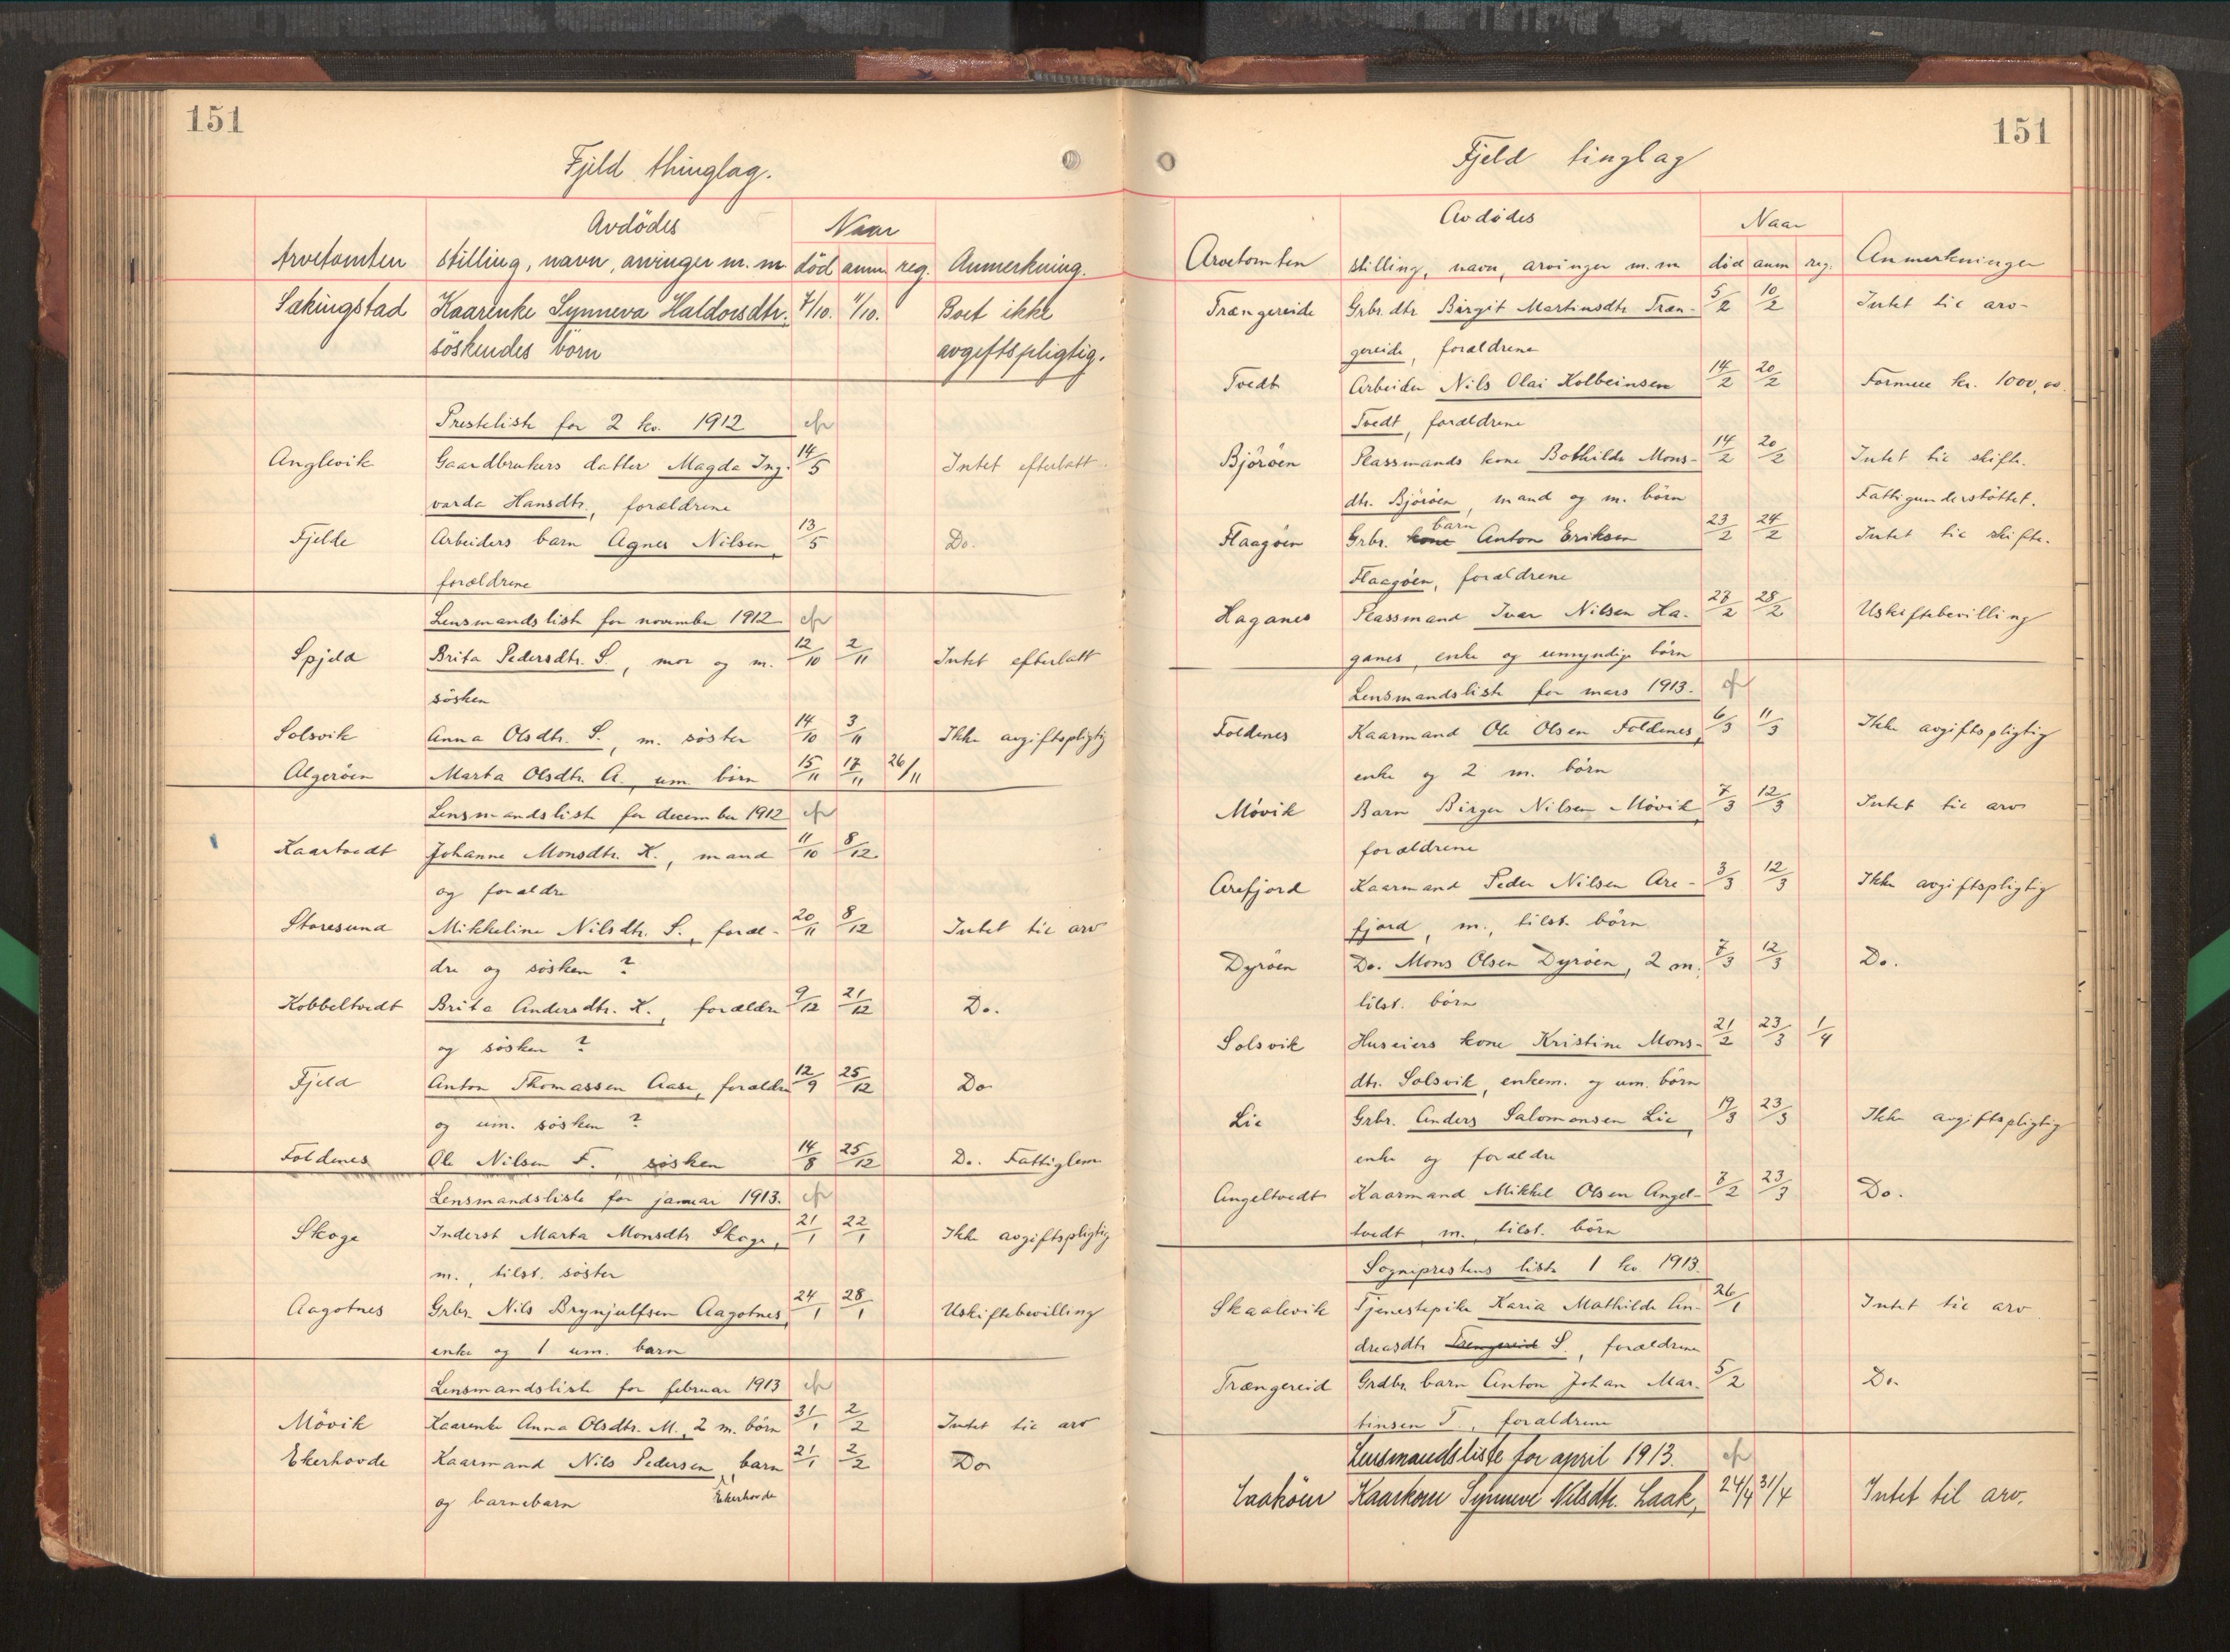 151
Fjeld thinglag.
Avdödes Naar
Arvetomten stilling, navn, arvinger m. m. död anm. reg. Anmerkning.
Sækingstad Kaarenke Synneva Haldorsdtr. 7/10. 11/10. Boet ikke
söskendes börn avgiftspligtig.
Presteliste for 2 kv. 1912
Anglevik Gaardbrukers datter Magda Ing- 14/5 Intet efterlatt
varda Hansdtr., forældrene
Fjelde Arbeiders barn Agnes Nilsen, 13/5 Do.
forældrene
Lensmandsliste for november 1912
Spjeld Brita Pedersdtr. S., mor og m. 12/10 2/11 Intet efterlatt
søsken
Solsvik Anna Olsdtr. S., m. søster 14/10 3/11 Ikke avgiftspligtig
Algerøen Marta Olsdtr. A., um. børn 15/11 17/11 26/11
Lensmandsliste for december 1912
Kaartvedt Johanne Monsdtr. K., mand 11/10 8/12
og forældre
Storesund Mikkeline Nilsdtr. S., foræl- 20/11 8/12 Intet til arv
dre og søsken ?
Kobbeltvedt Brita Andersdtr. K., forældre 9/12 21/12 Do.
og søsken ?
Fjeld Anton Thomassen Aase, forældre 12/9 25/12 Do
og um. søsken ?
Foldenes Ole Nilsen F., søsken 14/8 25/12 Do. Fattiglem
Lensmandsliste for januar 1913.
Skoge Inderst Marta Monsdtr Skoge, 21/1 22/1 Ikke avgiftspligtig
m., tilst. søster
Aagotnes Grbr. Nils Brynjulfsen Aagotnes, 24/1 28/1 Uskiftebevilling
enke og 1 um. barn
Lensmandsliste for februar 1913
Mövik Kaarenke Anna Olsdtr. M., 2 m. börn 31/1 2/2 Intet til arv
Ekerhovde Kaarmand Nils Pedersen, barn 21/1 2/2 Do
og barnebarn Ekerhovde
151
Fjeld tinglag
Avdødes Naar
Arvetomten stilling, navn, arvinger m. m død anm reg. Anmerkninger
Trængereide Grbr. dtr Birgit Martinsdtr Træn- 5/2 10/2 Intet til arv-
gereide, forældrene
Tvedt Arbeider Nils Olai Kolbeinsen 14/2 20/2 Formue kr. 1000,00.
Tvedt, forældrene
Bjørøen Plassmands kone Bothilda Mons- 14/2 20/2 Intet til skifte.
dtr. Bjørøen, mand og m. børn Fattigunderstøttet.
Flaagøen Grbr. kone barn Anton Eriksen 23/2 24/2 Intet til skifte.
Flaagøen, forældrene
Haganes Plassmand Ivar Nilsen Ha- 27/2 28/2 Uskiftebevilling
ganes, enke og umyndige børn
Lensmandsliste for mars 1913.
Foldenes Kaarmand Ole Olsen Foldenes, 6/3 11/3 Ikke avgiftspligtig
enke og 2 m. børn
Møvik Barn Birger Nilsen Møvik, 7/3 12/3 Intet til arv
forældrene
Arefjord Kaarmand Peder Nilsen Are- 3/3 12/3 Ikke avgiftspligtig
fjord, m., tilst. børn
Dyrøen Do. Mons Olsen Dyrøen, 2 m. 7/3 12/3 Do.
tilst. børn
Solsvik Huseiers kone Kristine Mons- 21/2 23/3 1/4
dtr. Solsvik, enkem. og um. børn
Lie Grbr. Anders Salomonsen Lie, 19/3 23/3 Ikke avgiftspligtig
enke og forældre
Angeltvedt Kaarmand Mikkel Olsen Angel- 8/2 23/3 Do.
tvedt, m., tilst. børn
Sogneprestens liste 1 kv. 1913.
Skaalevik Tjenestepike Karia Mathilde An- 26/1 Intet til arv
dreasdtr Trengereid S., forældrene
Trængereid Grdbr. barn Anton Johan Mar- 5/2 Do
tinsen T., forældrene
Lensmandsliste for april 1913.
Laaköen Kaarkone Synneve Nilsdtr. Laak, 24/4 31/4 Intet til arv.